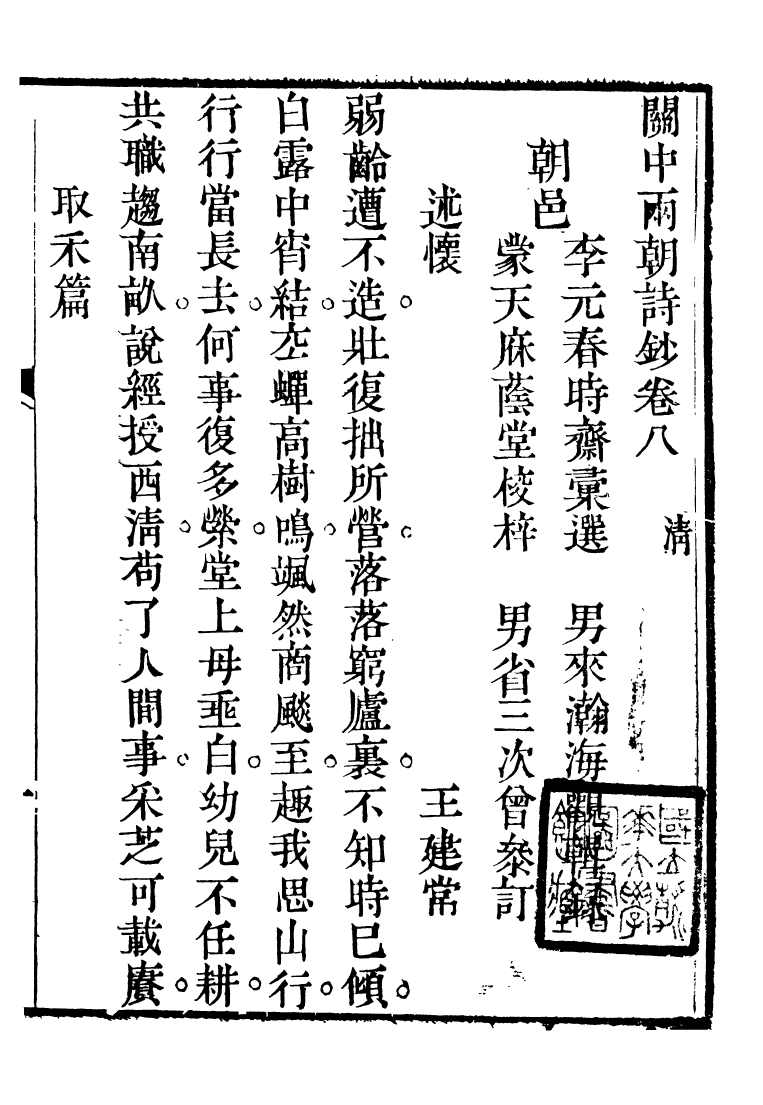 關中兩朝詩鈔卷八　清
朝邑
李元春時齋彙選　男來瀚海觀
蒙天庥蔭堂校梓　男省三次曾參訂
述懷　王建常
弱齡遭不造壯復拙所營落落窮廬裏不知時已傾
白露中宵結空蟬高樹鳴颯然商飈至趣我思山行
行行當長去何事復多縈堂上母垂白幼兒不任耕
共職趨南畝說經授西清苟了人間事采芝可載賡
取禾篇